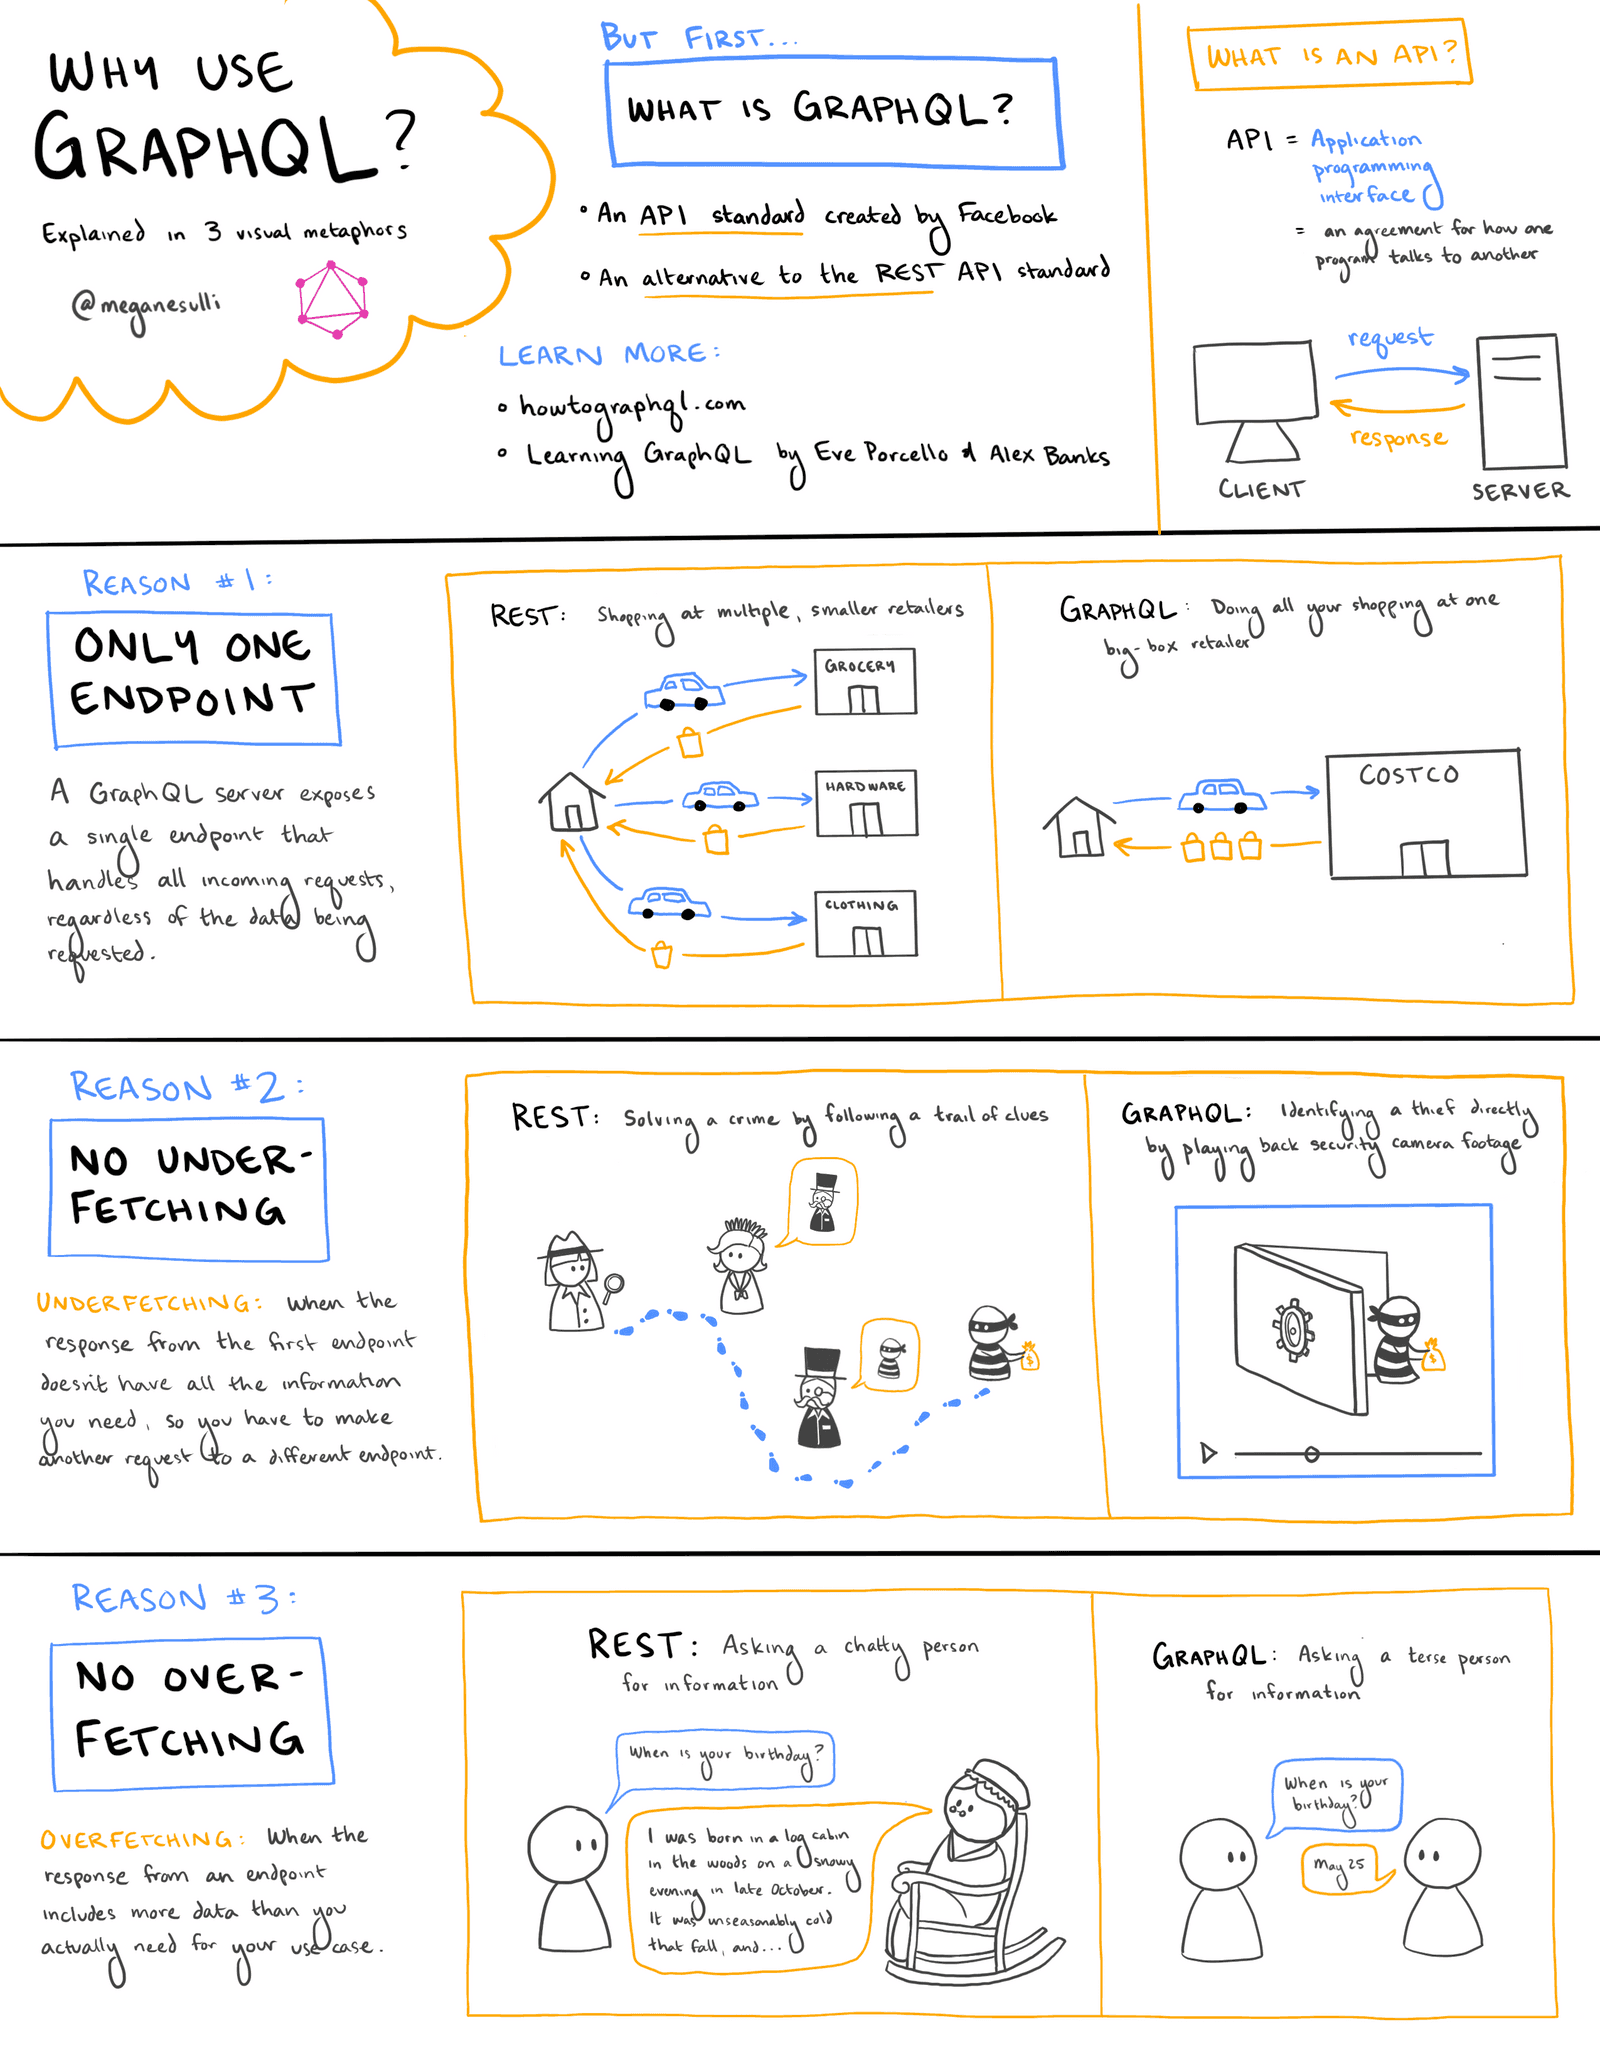 WHY USE
GRAPHQL?
Explained in 3 visual metaphors
@meganesulli
BUT FIRST...
WHAT IS GRAPHQL?
• An API standard created by Facebook
• An alternative to the REST API standard
LEARN MORE:
• howtographql.com
• Learning GraphQL by Eve Porcello & Alex Banks
WHAT IS AN API?
API = Application
programming
interface
= an agreement for how one
program talks to another
request
response
CLIENT
SERVER
REASON #1:
ONLY ONE
ENDPOINT
A GraphQL server exposes
a single endpoint that
handles all incoming requests,
regardless of the data being
requested.
REST: Shopping at multiple, smaller retailers
GROCERY
HARDWARE
CLOTHING
GRAPHQL: Doing all your shopping at one
big-box retailer
COSTCO
REASON #2:
NO UNDER-
FETCHING
UNDERFETCHING: When the
response from the first endpoint
doesn't have all the information
you need, so you have to make
another request to a different endpoint.
REST: Solving a crime by following a trail of clues
$
GRAPHQL: Identifying a thief directly
by playing back security camera footage
$
REASON #3:
NO OVER-
FETCHING
OVERFETCHING: When the
response from an endpoint
includes more data than you
actually need for your use case.
REST: Asking a chatty person
for information
When is your birthday?
I was born in a log cabin
in the woods on a snowy
evening in late October.
It was unseasonably cold
that fall, and...
GRAPHQL: Asking a terse person
for information
When is your
birthday?
May 25